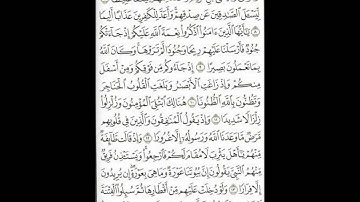 لِّيَسْـَٔلَ ٱلصَّـٰدِقِينَ عَن صِدْقِهِمْ وَأَعَدَّ لِلْكَـٰفِرِينَ عَذَابًا أَلِيمًا
٨ يَـٰٓأَيُّهَا ٱلَّذِينَ ءَامَنُوا۟ ٱذْكُرُوا۟ نِعْمَةَ ٱللَّهِ عَلَيْكُمْ إِذْ جَآءَتْكُمْ
جُنُودٌ فَأَرْسَلْنَا عَلَيْهِمْ رِيحًا وَجُنُودًا لَّمْ تَرَوْهَا وَكَانَ ٱللَّهُ
بِمَا تَعْمَلُونَ بَصِيرًا ٩ إِذْ جَآءُوكُم مِّن فَوْقِكُمْ وَمِنْ أَسْفَلَ
مِنكُمْ وَإِذْ زَاغَتِ ٱلْأَبْصَـٰرُ وَبَلَغَتِ ٱلْقُلُوبُ ٱلْحَنَاجِرَ
وَتَظُنُّونَ بِٱللَّهِ ٱلظُّنُونَا۠ ١٠ هُنَالِكَ ٱبْتُلِىَ ٱلْمُؤْمِنُونَ وَزُلْزِلُوا۟
زِلْزَالًا شَدِيدًا ١١ وَإِذْ يَقُولُ ٱلْمُنَـٰفِقُونَ وَٱلَّذِينَ فِى قُلُوبِهِم
مَّرَضٌ مَّا وَعَدَنَا ٱللَّهُ وَرَسُولُهُۥٓ إِلَّا غُرُورًا ١٢ وَإِذْ قَالَت طَّآئِفَةٌ
مِّنْهُمْ يَـٰٓأَهْلَ يَثْرِبَ لَا مُقَامَ لَكُمْ فَٱرْجِعُوا۟ وَيَسْتَـْٔذِنُ فَرِيقٌ
مِّنْهُمُ ٱلنَّبِىَّ يَقُولُونَ إِنَّ بُيُوتَنَا عَوْرَةٌ وَمَا هِىَ بِعَوْرَةٍ إِن يُرِيدُونَ
إِلَّا فِرَارًا ١٣ وَلَوْ دُخِلَتْ عَلَيْهِم مِّنْ أَقْطَارِهَا ثُمَّ سُئِلُوا۟ ٱلْفِتْنَةَ